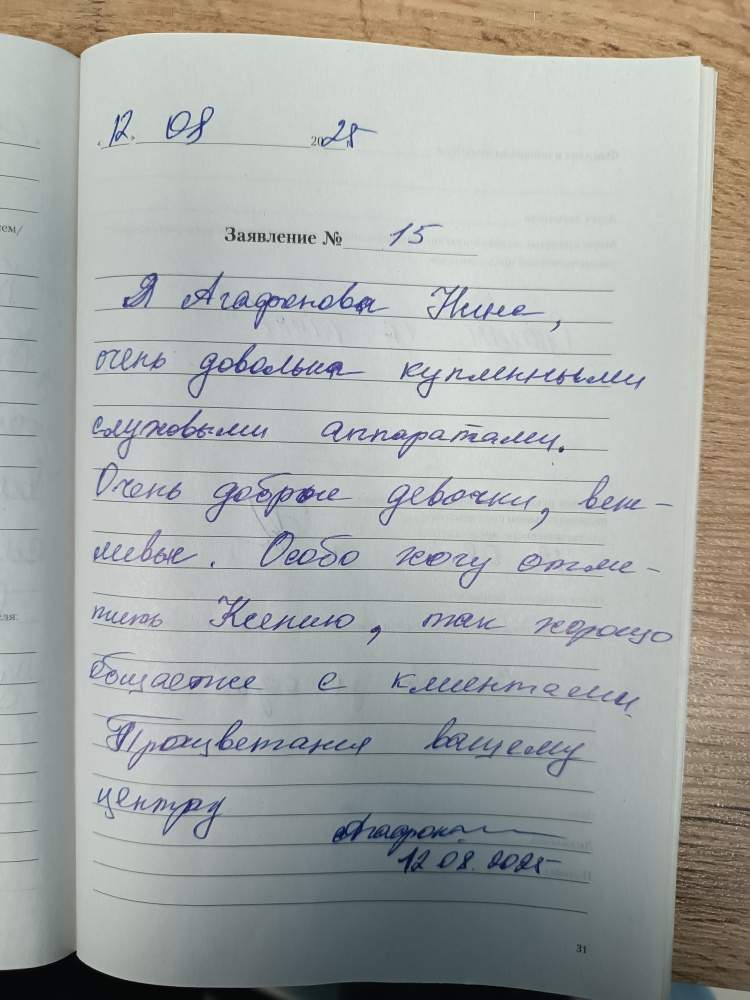 ем/
еля:
«12» 08 2025
Заявление № 15
Я Агафонова Нина,
очень довольна купленными
слуховыми аппаратами.
Очень добрые девочки, веж-
ливые. Особо хочу отме-
тить Ксению, так хорошо
общается с клиентами.
Процветания вашему
центру
Агафонова
12 08. 2025
31